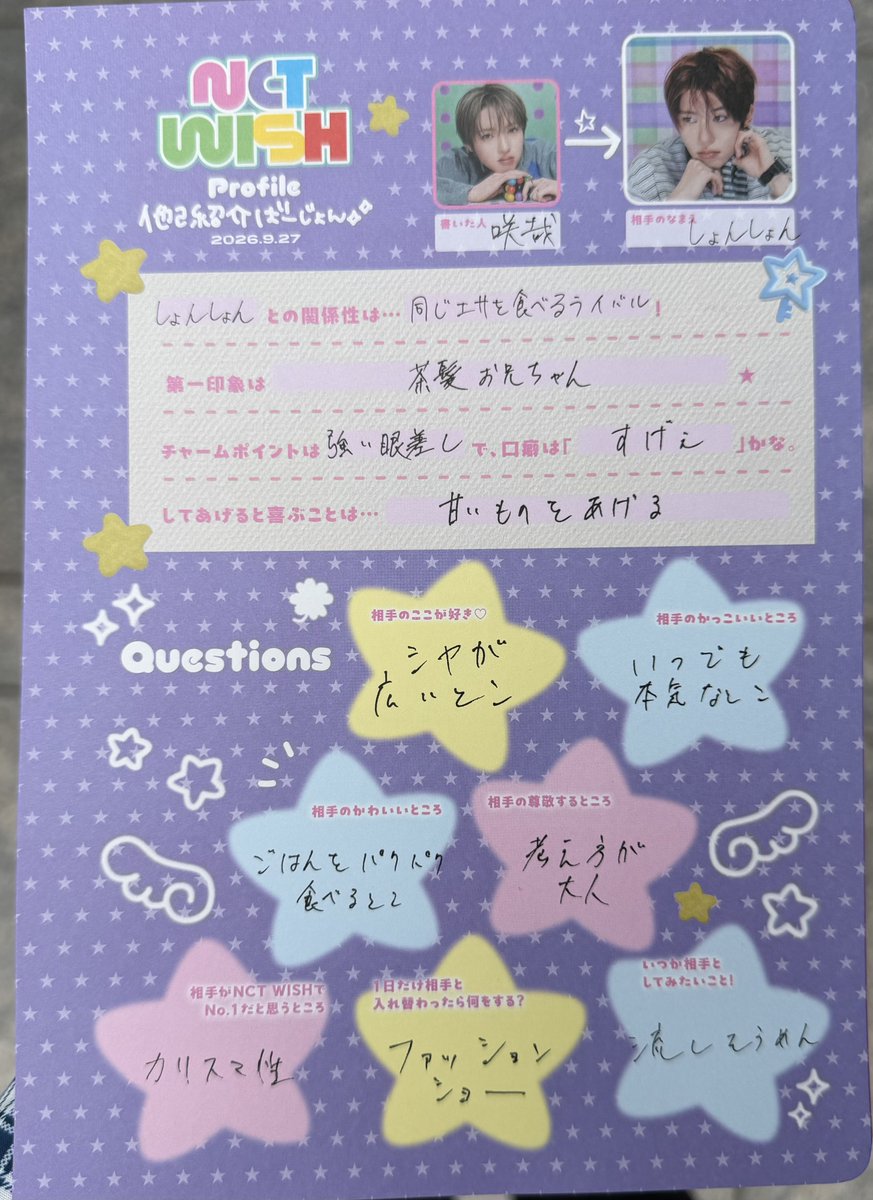 NCT
WISH
Profile
他己紹介ばーじょん
2026.9.27
書いた人 咲哉
相手のなまえ しょんしょん
しょんしょん との関係性は… 同じエサを食べるライバル!
第一印象は 茶髪お兄ちゃん ★
チャームポイントは 強い眼差し で、口癖は「すげぇ」かな。
してあげると喜ぶことは… 甘いものをあげる
Questions
相手のここが好き♡
シヤが
広いとこ
相手のかっこいいところ
いつでも
本気なとこ
相手のかわいいところ
ごはんをパクパク
食べるとこ
相手の尊敬するところ
考え方が
大人
相手がNCT WISHで
No.1だと思うところ
カリスマ性
1日だけ相手と
入れ替わったら何をする?
ファッション
ショー
いつか相手と
してみたいこと!
流しそうめん